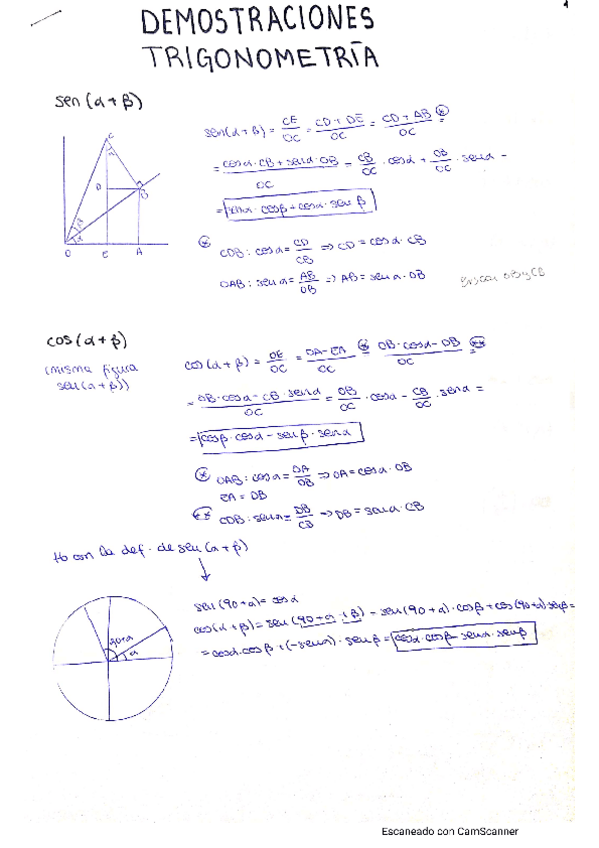 1
DEMOSTRACIONES
TRIGONOMETRÍA
sen (α + β)
sen(α+β) = CE/OC = CD + DE/OC = CD + AB/OC ⊛
= cosα · CB + senα · OB/OC = CB/OC · cosα + OB/OC · senα =
= senα · cosβ + cosα · sen β
⊛ CDB : cosα = CD/CB ⇒ CD = cosα · CB
OAB : senα = AB/OB ⇒ AB = senα · OB
Buscar OB y CB
C
D
B
O
E
A
cos (α + β)
(misma figura
sen(α+β))
cos (α + β) = OE/OC = OA - EA/OC ⊛ OB · cosα - DB/OC ⊛⊛
= OB · cosα - CB · senα/OC = OB/OC · cosα - CB/OC · senα =
= cosβ · cosα - senβ · senα
⊛ OAB : cosα = OA/OB ⇒ OA = cosα · OB
EA = DB
⊛⊛ CDB : senα = DB/CB ⇒ DB = senα · CB
con la def. de sen (α + β)
sen (90 + α) = cosα
cos(α + β) = sen (90 + α + β) = sen (90 + α) · cosβ + cos (90 + α) senβ =
= cosα · cosβ + (-senα) · senβ = cosα · cosβ - senα · senβ
90+α
α
Escaneado con CamScanner